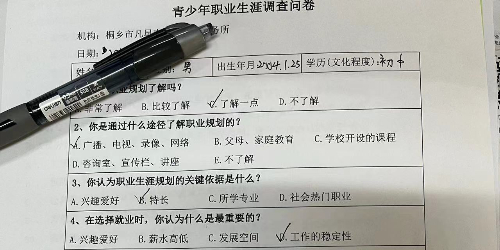 青少年职业生涯调查问卷
机构：桐乡市凡 务所
日期：
姓 别：男 出生年月2004.1.23 学历(文化程度):初中
业规划了解吗？
非常了解 B.比较了解 了解一点 D.不了解
2、你是通过什么途径了解职业规划的？
广播、电视、录像、网络 B.父母、家庭教育 C.学校开设的课程
D.咨询室、宣传栏、讲座 E.不了解
3、你认为职业生涯规划的关键依据是什么？
A.兴趣爱好 B.特长 C.所学专业 D.社会热门职业
4、在选择就业时，你认为什么是最重要的？
A.兴趣爱好 B.薪水高低 C.发展空间 工作的稳定性